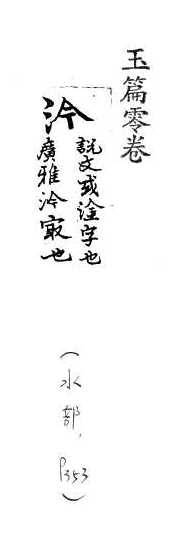 玉篇零卷
汵
説文或淦字也
廣雅汵㝡也
(水部, P353)